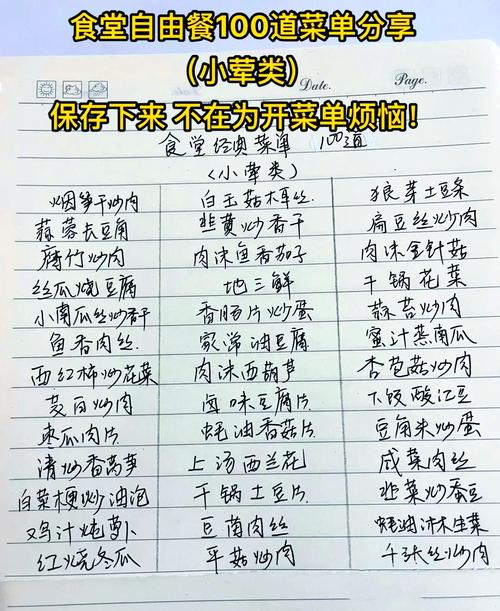 食堂自由餐100道菜单分享
（小荤类）
Date.
Page.
保存下来 不在为开菜单烦恼！
食堂经典菜单 100道
（小荤类）
烟笋干炒肉 白玉菇木耳丝. 狼芽土豆条
蒜蓉长豆角 韭黄炒香干 扁豆丝炒肉
腐竹炒肉 肉沫鱼香茄子 肉沫金针菇
丝瓜烧豆腐 地三鲜 干锅花菜
小南瓜丝炒香干 香肠片炒蛋 蒜苔炒肉
鱼香肉丝 家常油豆腐 蜜汁蒸南瓜
西红柿炒花菜 肉沫西葫芦 杏苞菇炒肉
茭白炒肉 卤味豆腐片. 下饭酸江豆
冬瓜肉片 蚝油香菇片. 豆角米炒蛋
清炒香莴笋 上汤西兰花 咸菜肉丝
白菜梗炒油泡 干锅土豆片 韭菜炒蚕豆
鸡汁炖萝卜 豆芽肉丝 蚝油沐生菜
红烧冬瓜 平菇炒肉 千张丝炒肉